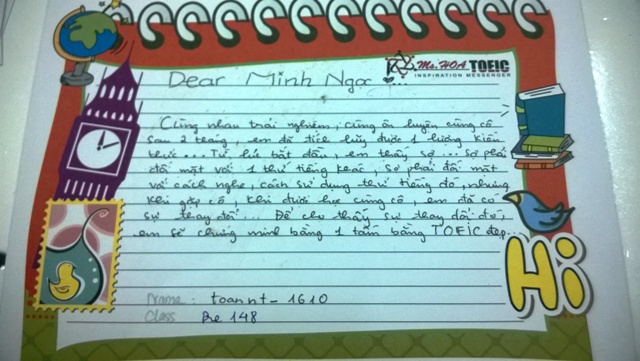 Ms.HOA TOEIC
INSPIRATION MESSENGER
Dear Minh Ngọc ♥...
Cùng nhau trải nghiệm, cùng ôn luyện cùng cô
sau 2 tháng, em đã tích lũy được 1 lượng kiến
thức... Từ lúc bắt đầu, em thấy sợ... Sợ phải
đối mặt với 1 thứ tiếng khác, sợ phải đối mặt
với cách nghe, cách sử dụng thứ tiếng đó, nhưng
khi gặp cô, khi được học cùng cô, em đã có
sự thay đổi... Để cho thấy sự thay đổi đó,
em sẽ chứng minh bằng 1 tấm bằng TOEIC đẹp...
Hi
Name: toannt-1610
Class Pre 148